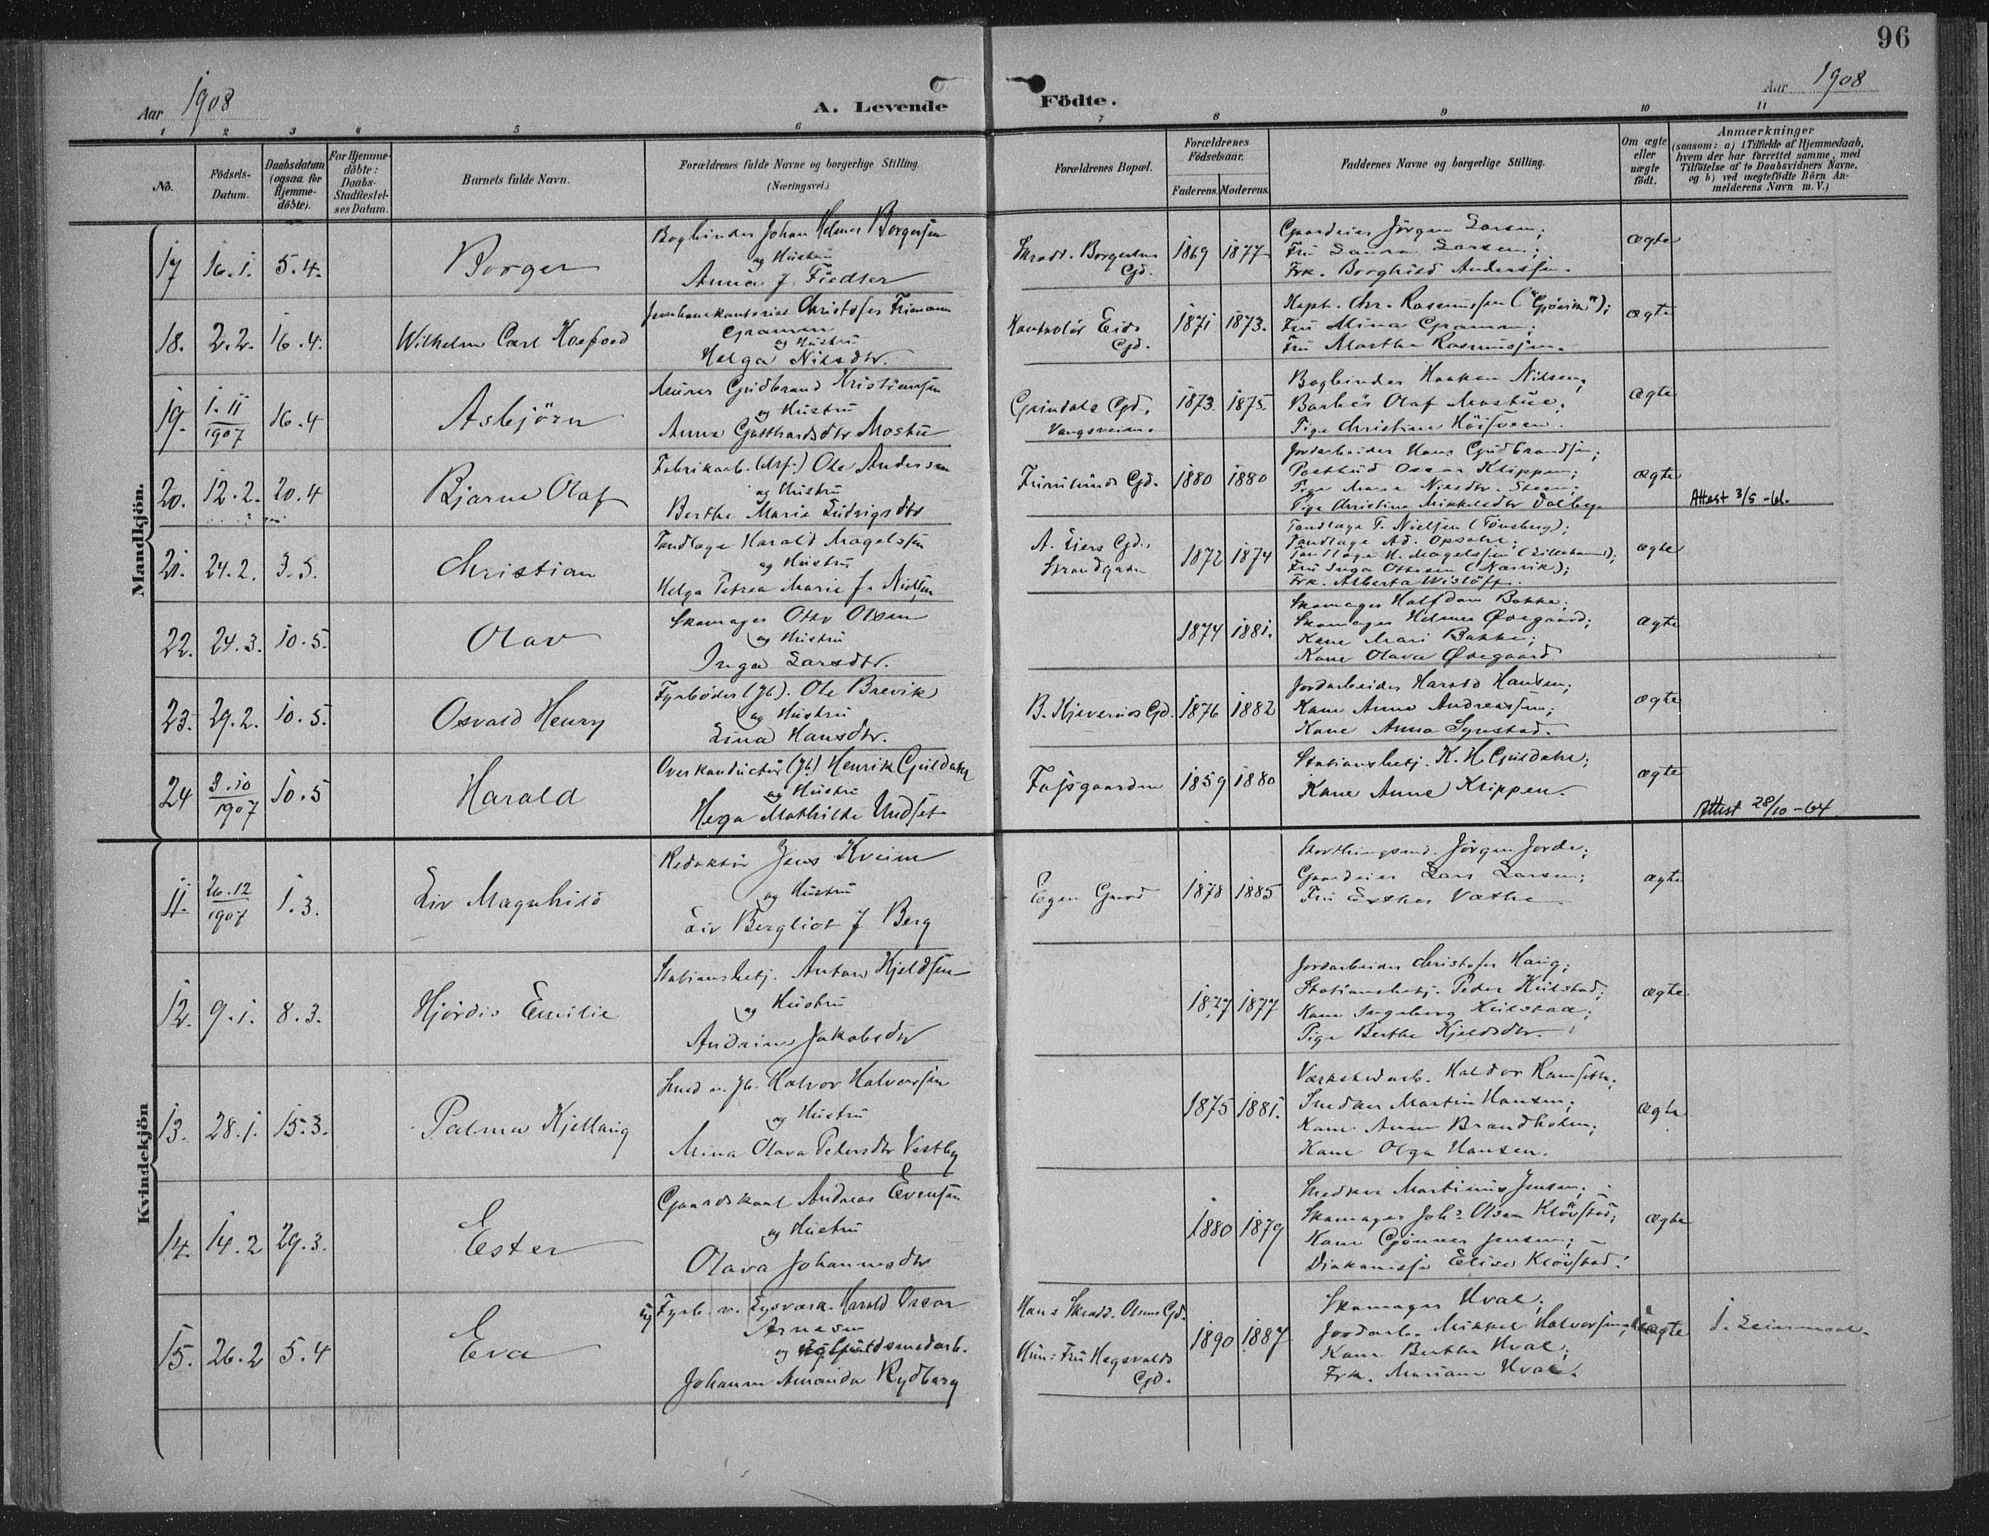 96
Aar 1908
A. Levende
Födte.
Aar 1908
1 2 3 4 5 6 7 8 9 10 11
No.
Födsels-
Datum.
Daabsdatum
(ogsaa for
Hjemme-
döbte).
For Hjemme-
döbte:
Daabs-
Stadfæstel-
ses Datum.
Barnets fulde Navn.
Forældrenes fulde Navne og borgerlige Stilling.
(Næringsvei.)
Forældrenes Bopæl.
Forældrenes
Födselsaar.
Faderens. Moderens.
Faddernes Navne og borgerlige Stilling.
Om ægte
eller
uægte
födt.
Anmærkninger
(saasom: a) i Tilfælde af Hjemmedaab,
hvem der har forrettet samme, med
Tilföielse af to Daabsvidners Navne.
og b) ved uægtefödte Börn An-
melderens Navn m. V.)
Mandkjön.
17 16.1. 5.4. Borger
Bogbinder Johan Helmer Borgersen
og Hustru
Anna J. Fiedler
Skrædd. Borgersens
Gd.
1869 1877
Gaardeier Jörgen Larsen;
Fru Laura Larsen;
Frk. Borghild Anderssen.
ægte
18. 2.2. 16.4. Wilhelm Carl
Jernbanekontorist Christofer Frimann
Gramm
og Hustru
Helga Nilsdtr.
Kontrolör Eids
Gd.
1871 1873.
Kapt. Chr. Rasmussen ("Gjövik");
Fru Mina Gramm;
Fru Marthe Rasmussen.
ægte
19. 1.11
1907 16.4 Asbjörn
Murer Gudbrand Kristiansen
og Hustru
Anna Gotthardsdtr Mostue
Grindals Gd.
Vangsveien.
1873 1875.
Bogbinder Haakon Nilsen;
Barbér Olaf Mostue;
Pige Christine
ægte
20. 12.2. 20.4 Bjarne Olaf
Fabrikarb. Ole Andersen
og Hustru
Berthe Marie Ludvigsdtr
Gd.
1880 1880
Jordarbeider Hans Gudbrandsen;
Postbud Oscar Klippen;
Pige Maria Nilsdtr. Steen;
Pige Christine Mikkelsdtr Dalby.
ægte
Attest 3/5-61.
21. 24.2. 3.5. Christian
Tandlæge Harald Magelssen
og Hustru
Helga Petrea Marie f. Nielsen
A. Liers Gd.,
Strandgaden
1872 1874
Tandlæge T. Nielsen (Tönsberg);
Tandlæge Ad. Opsahl;
Tandlæge H. Magelssen (Lillehammer);
Fru Inga Ottesen (Narvik);
Frk. Alberta Wislöff.
ægte
22. 24.3. 10.5. Olav
Skomager Otto Olsen
og Hustru
Inga Larsdtr.
1874 1881.
Skomager Halfdan Bakke;
Skomager Helmer Øvegaard;
Kone Mari Bakke;
Kone Olava Øvegaard
ægte
23. 29.2. 10.5. Osvald Henry
Fyrböder (Jb). Ole Brevik
og Hustru
Lina Hansdtr.
B. Kjeverud Gd.
1876 1882
Jordarbeider Harald Hansen;
Kone Anne Andreassen;
Kone Anna Synstad.
ægte
24 3.10
1907 10.5 Harald
Overkonduktör (Jb) Henrik Guldahl
og Hustru
Helga Mathilde Undset
1859 1880
Stationsbetj. K. H. Guldahl;
Kone Anne Klippen.
ægte
Attest 28/10-64
Kvindekjön
11. 26.12
1907 1.3. Liv Magnhild
Redaktör Jens Kveim
og Hustru
Liv Bergliot f Berg
Egen Gaard
1878 1885
Storthingsmd. Jörgen Jorde;
Gaardeier Lars Larsen;
Fru Esther Vatne
ægte
12. 9.1. 8.3. Hjördis Emilie
Stationsbetj. Anton Kjeldsen
og Hustru
Andrine Jakobsdtr
1877 1877
Jordarbeider Christofer Haug;
Stationsbetj. Peder Hulstad;
Kone Ingeborg Hulstad;
Pige Berthe Kjeldsdtr.
ægte
13. 28.1. 15.3. Palma Kjellaug
Smed v. Jb. Halvor Halvorsen
og Hustru
Mina Olava Pedersdtr Vestby
1875 1881.
Værkstedarb. Haldor Ramseth;
Snedker Martin Hansen;
Kone Anna Brandholm;
Kone Olga Hansen.
ægte
14. 14.2 29.3. Ester
Gaardskarl Andreas Evensen
og Hustru
Olava Johannesdtr
1880 1879
Snedker Martinius Jensen;
Skomager Johs Olsen Klövstad;
Kone Gönner Jensen;
Diakonisse Elise Klövstad.
ægte
15. 26.2 5.4 Eva
Fyrb. v. Lysværk. Harald Oscar
Arnesen
og Guldsmedarb.
Johanne Amanda Rydberg
Hans: Skrædd. Olsens Gd.
Hun: Fru Hegsvolds
Gd.
1890 1887
Skomager Hval;
Jordarb. Mikkel Halvorsen;
Kone Berthe Hval;
Frk. Mariane Hval.
uægte
1. Leiermaal.